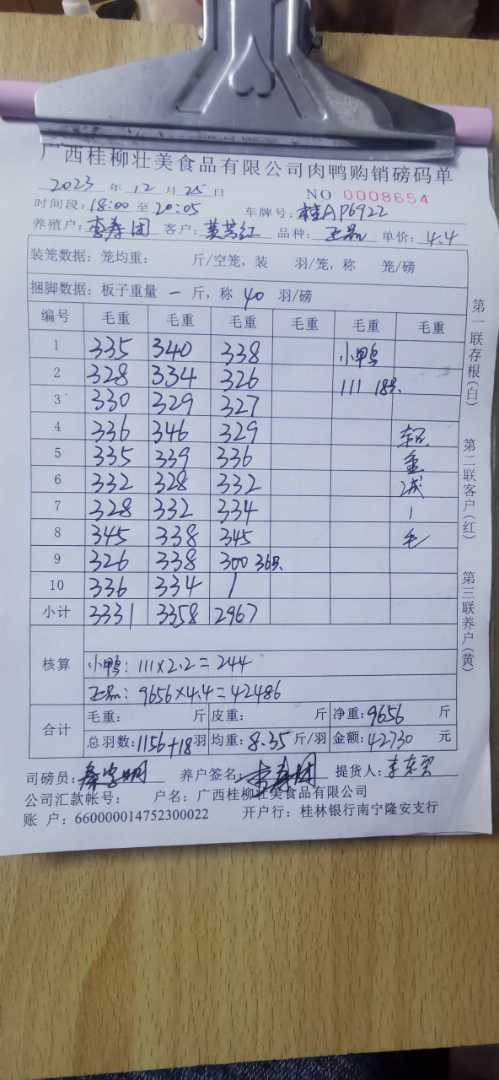 广西桂柳壮美食品有限公司肉鸭购销磅码单
2023 年 12 月 25 日 NO 0008654
时间段:18:00 至 20:05 车牌号:桂AP6922
养殖户: 客户: 品种:正品 单价:4.4
装笼数据:笼均重: 斤/空笼,装 羽/笼,称 笼/磅
捆脚数据:板子重量 一 斤,称 40 羽/磅
编号 毛重 毛重 毛重 毛重 毛重 毛重
1 335 340 338 小鸭
2 328 334 326 111 18只
3 330 329 327
4 336 346 329
5 335 339 336
6 332 328 332
7 328 332 334 1
8 345 338 345 毛
9 326 338 300 36只
10 336 334 /
小计 3331 3358 2967
核算 小鸭:111×2.2=244
正品:9656×4.4=42486
合计 毛重: 斤 皮重: 斤 净重:9656 斤
总羽数:1156+18羽 均重:8.35 斤/羽 金额:42730 元
司磅员: 养户签名: 提货人:
公司汇款帐号: 户名:广西桂柳壮美食品有限公司
账 户:660000014752300022 开户行:桂林银行南宁隆安支行
第一联存根(白)
第二联客户(红)
第三联养户(黄)